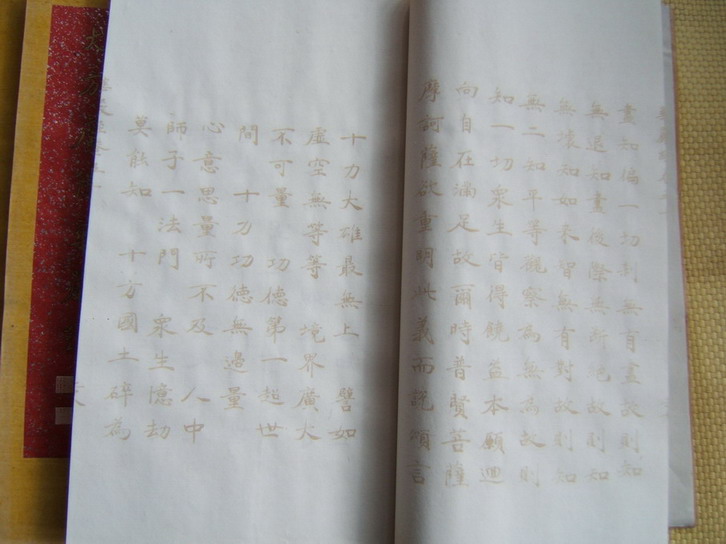 盡知徧一切刹無有盡故則知
無退知盡後際無所絶故則知
無壞知如來智無有對故則知
無二知平等觀察為無為故則
知一切衆生皆得饒益本願迴
向自在滿足故爾時普賢菩薩
摩訶薩欲重明此義而說頌言
十力大雄最無上　譬如
虛空無等等　境界廣大
不可量　功德第一超世
間　十力功德無邊量
心意思量所不及　人中
師子一法門　衆生億劫
莫能知　十方國土碎為